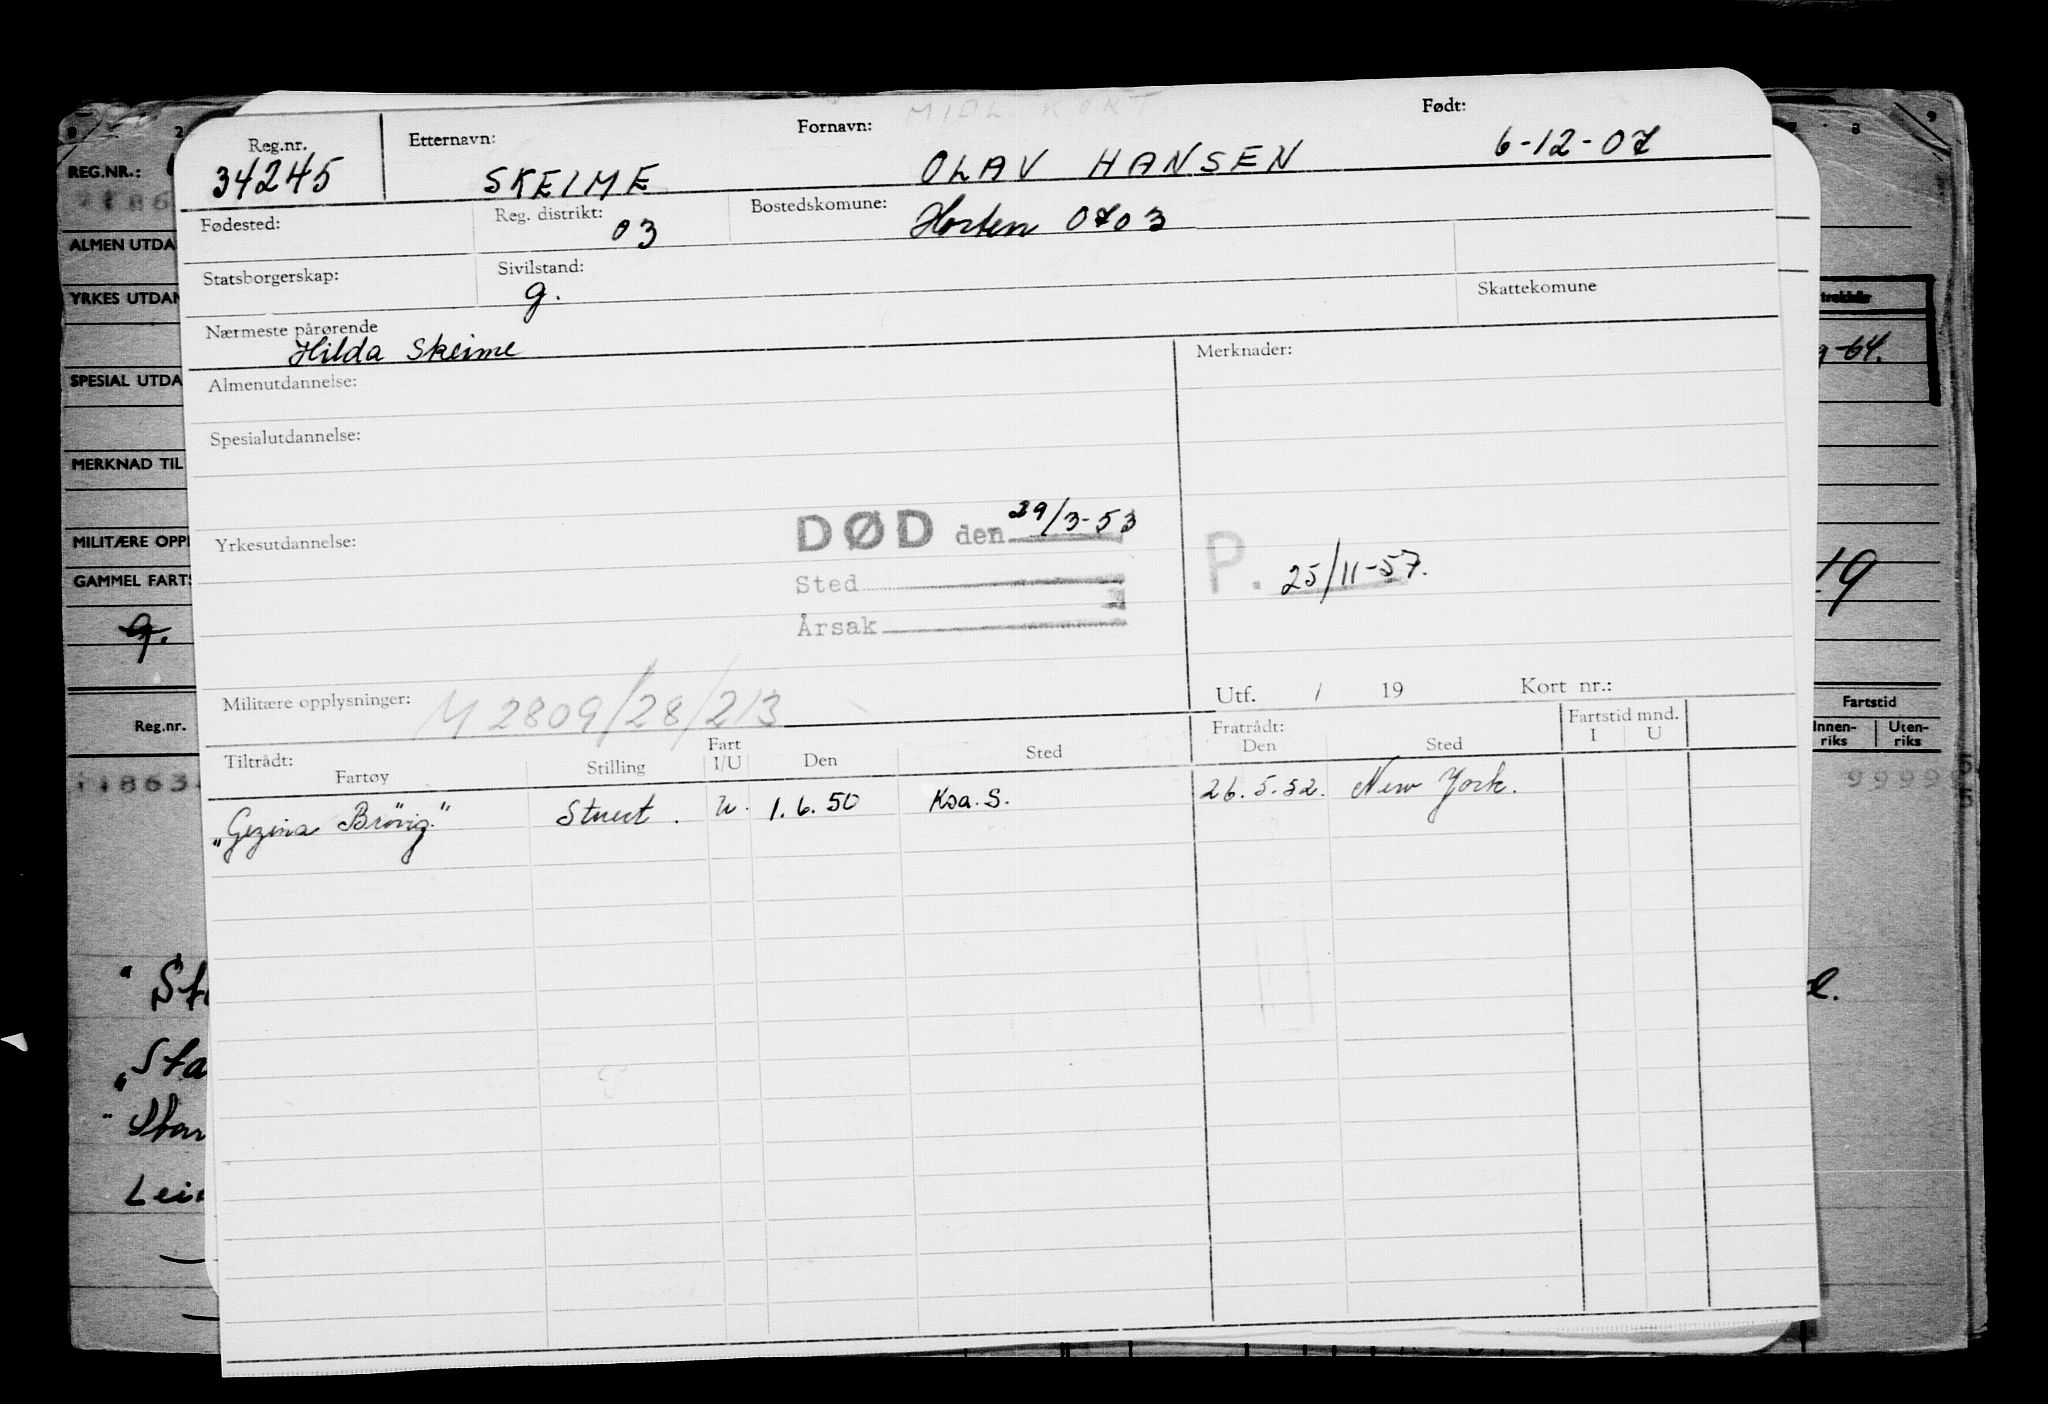 MIDL. KORT
Reg.nr. Etternavn: Fornavn: Født:
34245 SKEIME OLAV HANSEN 6-12-07
Fødested: Reg. distrikt: 03 Bostedskomune: Horten 0703
Statsborgerskap: Sivilstand: g. Skattekomune
Nærmeste pårørende Hilda Skeime
Merknader:
Almenutdannelse:
Spesialutdannelse:
Yrkesutdannelse:
DØD den 29/3-53
Sted
Årsak
P. 25/11-57.
Militære opplysninger: M 2809/28/213
Utf. / 19 Kort nr.:
Tiltrådt: Fratrådt: Fartstid mnd.
Fartøy Stilling Fart I/U Den Sted Den Sted I U
"Gezina Brövig" Stuert. U. 1.6.50 Ksa. S. 26.5.52. New York.
REG.NR.:
ALMEN UTDA
YRKES UTDAN
SPESIAL UTDA
MERKNAD TIL
MILITÆRE OPPL
GAMMEL FARTS
g.
Reg.nr.
-64.
19
Fartstid
Innen-riks Uten-riks